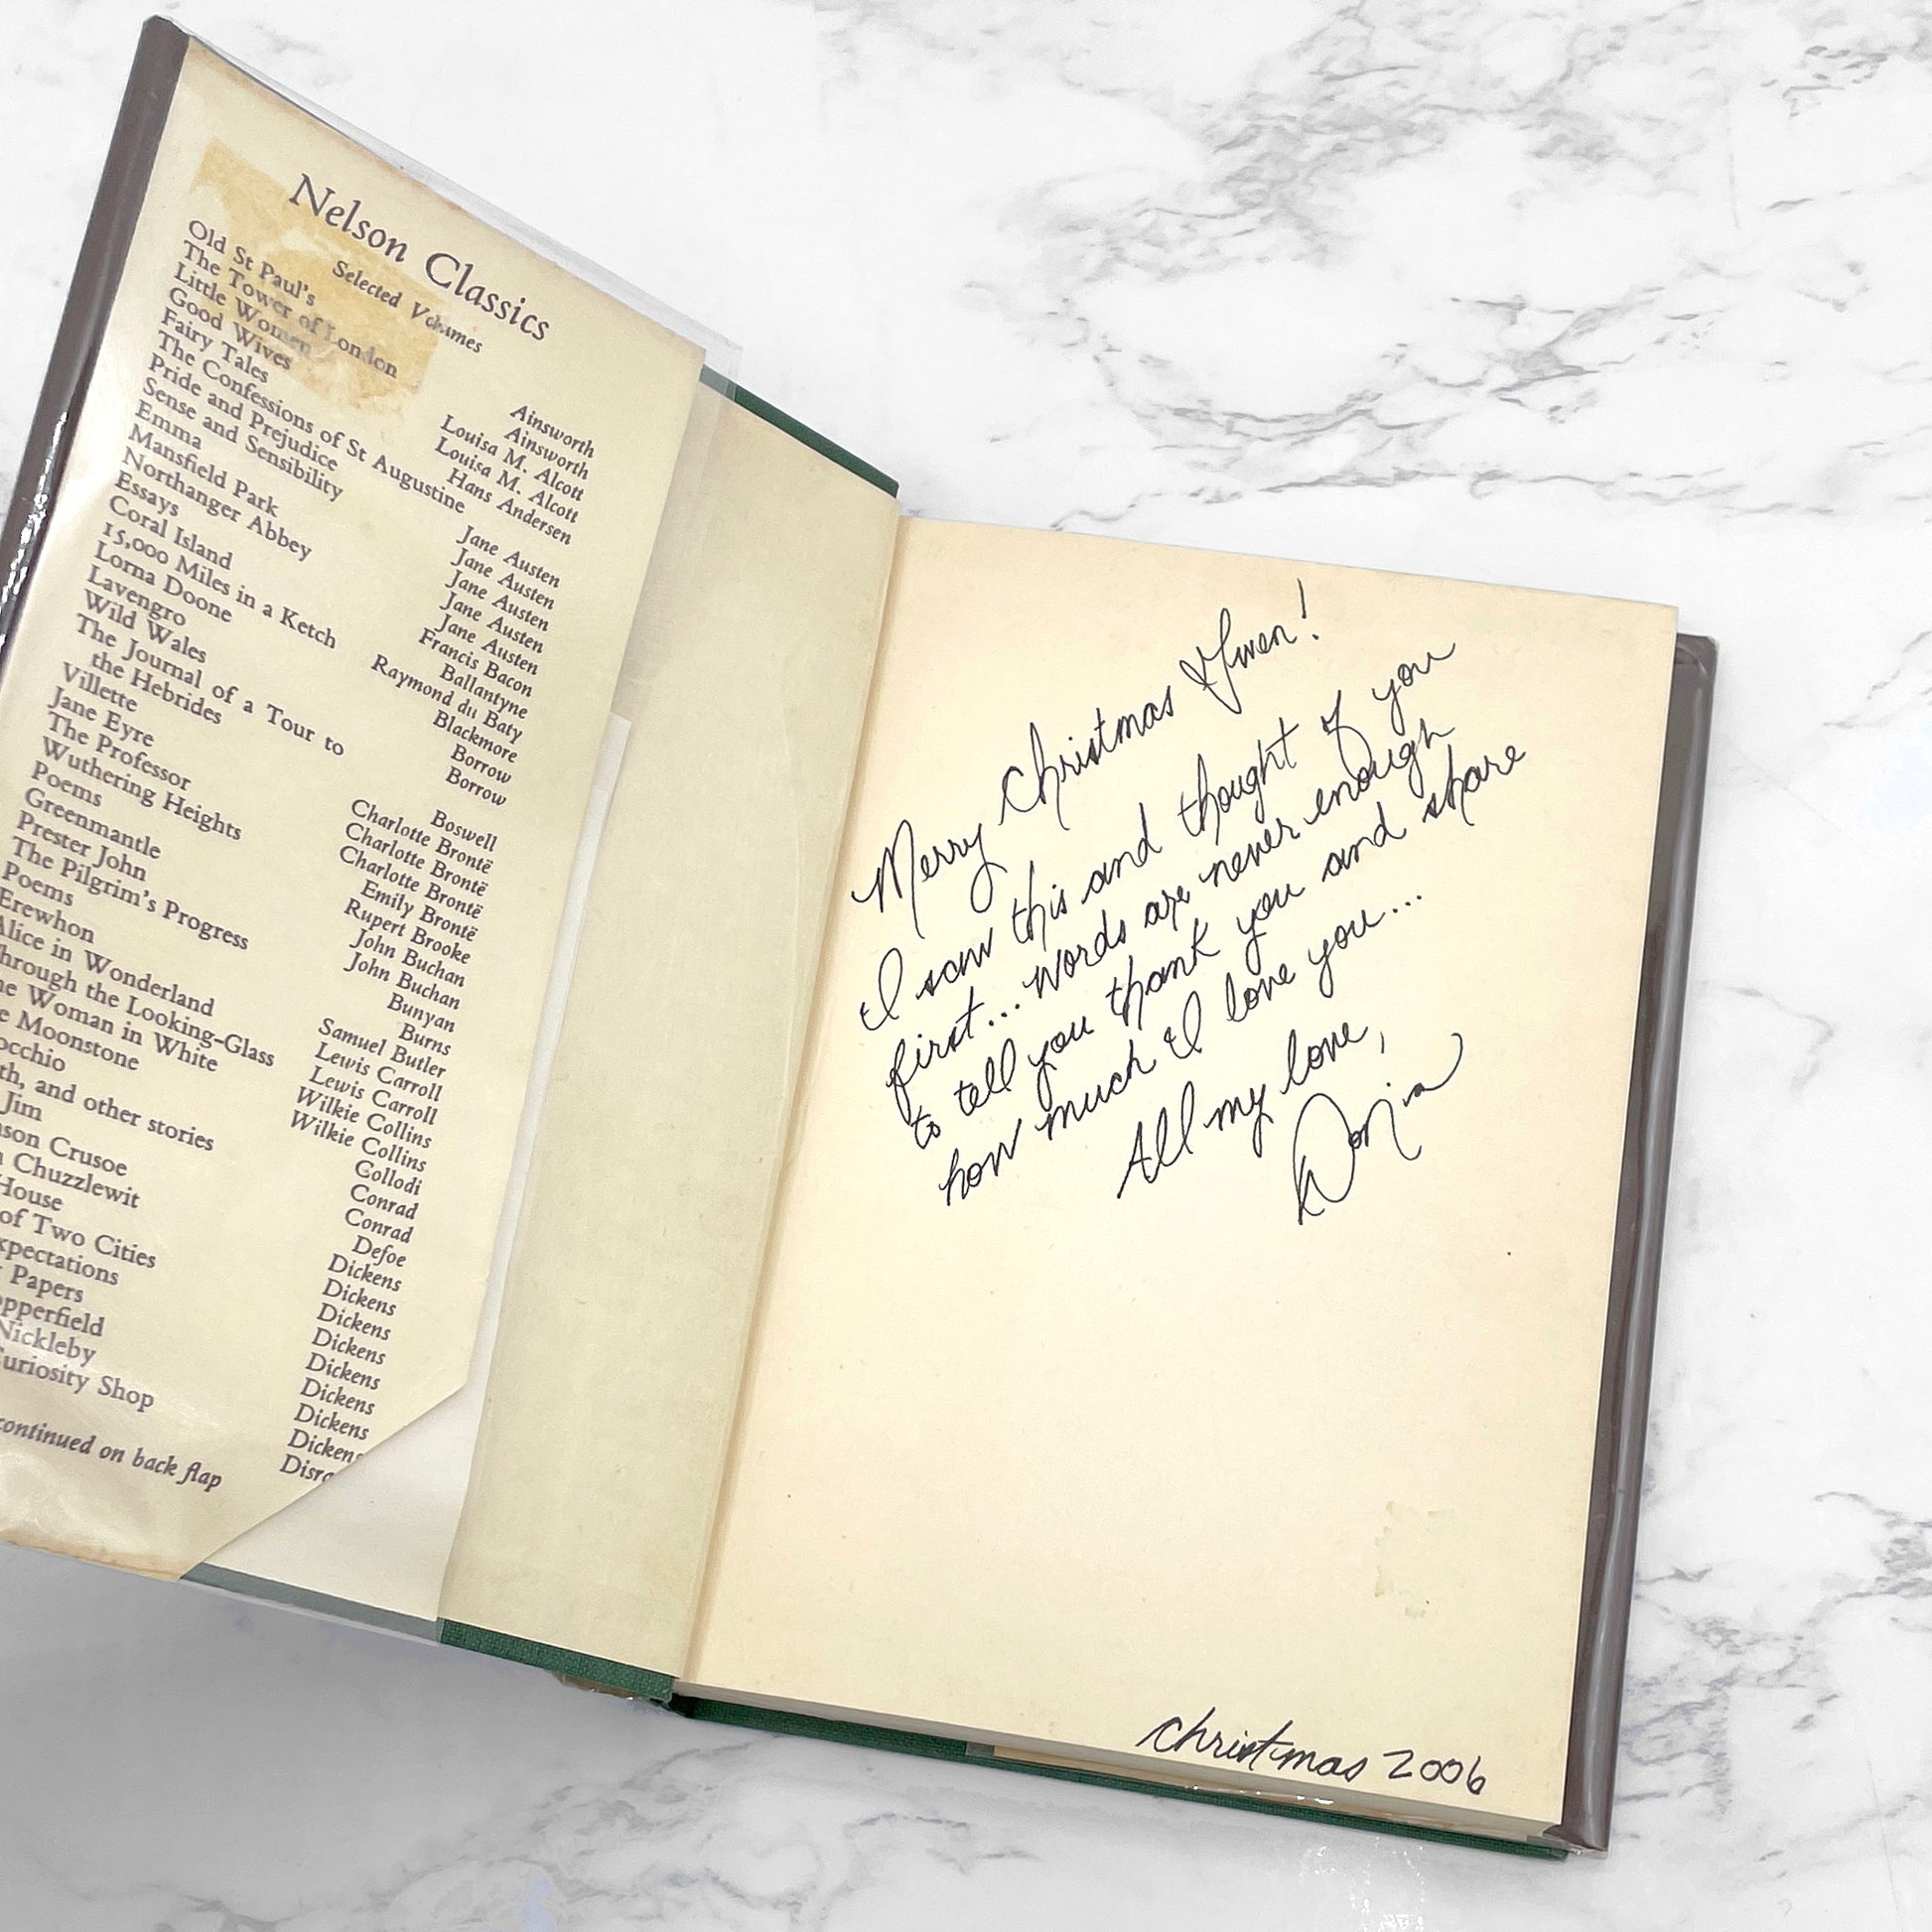 Nelson Classics
Selected Volumes
Old St Paul's Ainsworth
The Tower of London Ainsworth
Little Women Louisa M. Alcott
Good Wives Louisa M. Alcott
Fairy Tales Hans Andersen
The Confessions of St Augustine
Pride and Prejudice Jane Austen
Sense and Sensibility Jane Austen
Emma Jane Austen
Mansfield Park Jane Austen
Northanger Abbey Jane Austen
Essays Francis Bacon
Coral Island Ballantyne
15,000 Miles in a Ketch Raymond du Baty
Lorna Doone Blackmore
Lavengro Borrow
Wild Wales Borrow
The Journal of a Tour to
the Hebrides Boswell
Villette Charlotte Brontë
Jane Eyre Charlotte Brontë
The Professor Charlotte Brontë
Wuthering Heights Emily Brontë
Poems Rupert Brooke
Greenmantle John Buchan
Prester John John Buchan
The Pilgrim's Progress Bunyan
Poems Burns
Erewhon Samuel Butler
Alice in Wonderland Lewis Carroll
hrough the Looking-Glass Lewis Carroll
he Woman in White Wilkie Collins
e Moonstone Wilkie Collins
occhio Collodi
th, and other stories Conrad
Jim Conrad
nson Crusoe Defoe
Chuzzlewit Dickens
House Dickens
of Two Cities Dickens
xpectations Dickens
Papers Dickens
opperfield Dickens
Nickleby Dickens
Curiosity Shop Dickens
Disra
continued on back flap
Merry Christmas Gwen!
I saw this and thought of you
first... Words are never enough
to tell you thank you and share
how much I love you...
All my love,
Christmas 2006